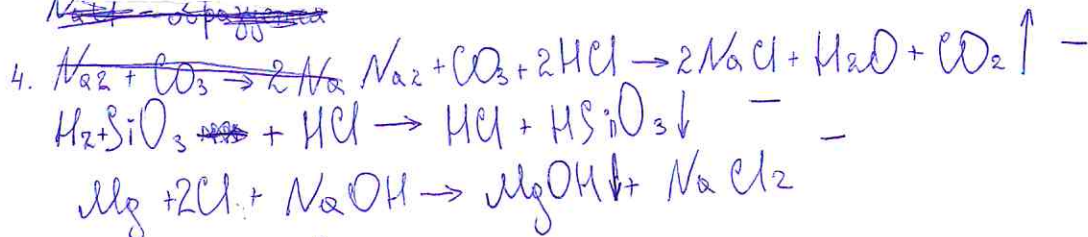 NaCl - образуется
4. Na2 + CO3 → 2Na Na2 + CO3 + 2HCl → 2NaCl + H2O + CO2↑ –
H2+SiO3 + HCl → HCl + HSiO3↓ –
Mg +2Cl + NaOH → MgOH↓ + NaCl2 –